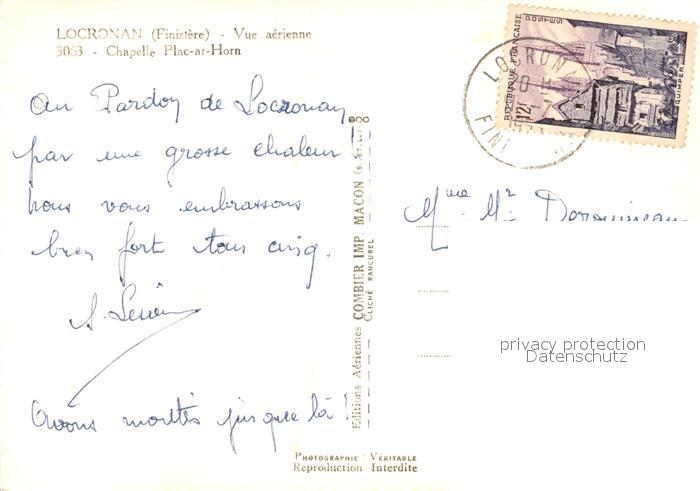 LOCRONAN (Finistère) - Vue aérienne
3063 - Chapelle Plac-ar-Horn
Au Pardon de Locronan
par une grosse chaleur !
Nous vous embrassons
bien fort tous cinq.
Avons montés jusque là !
Editions Aériennes COMBIER IMP. MACON
CLICHÉ RANCUREL
PHOTOGRAPHIE VÉRITABLE
Reproduction Interdite
POSTES
REPUBLIQUE FRANÇAISE
12F
QUIMPER
LOCRON
FINI
Mme Mr
privacy protection
Datenschutz